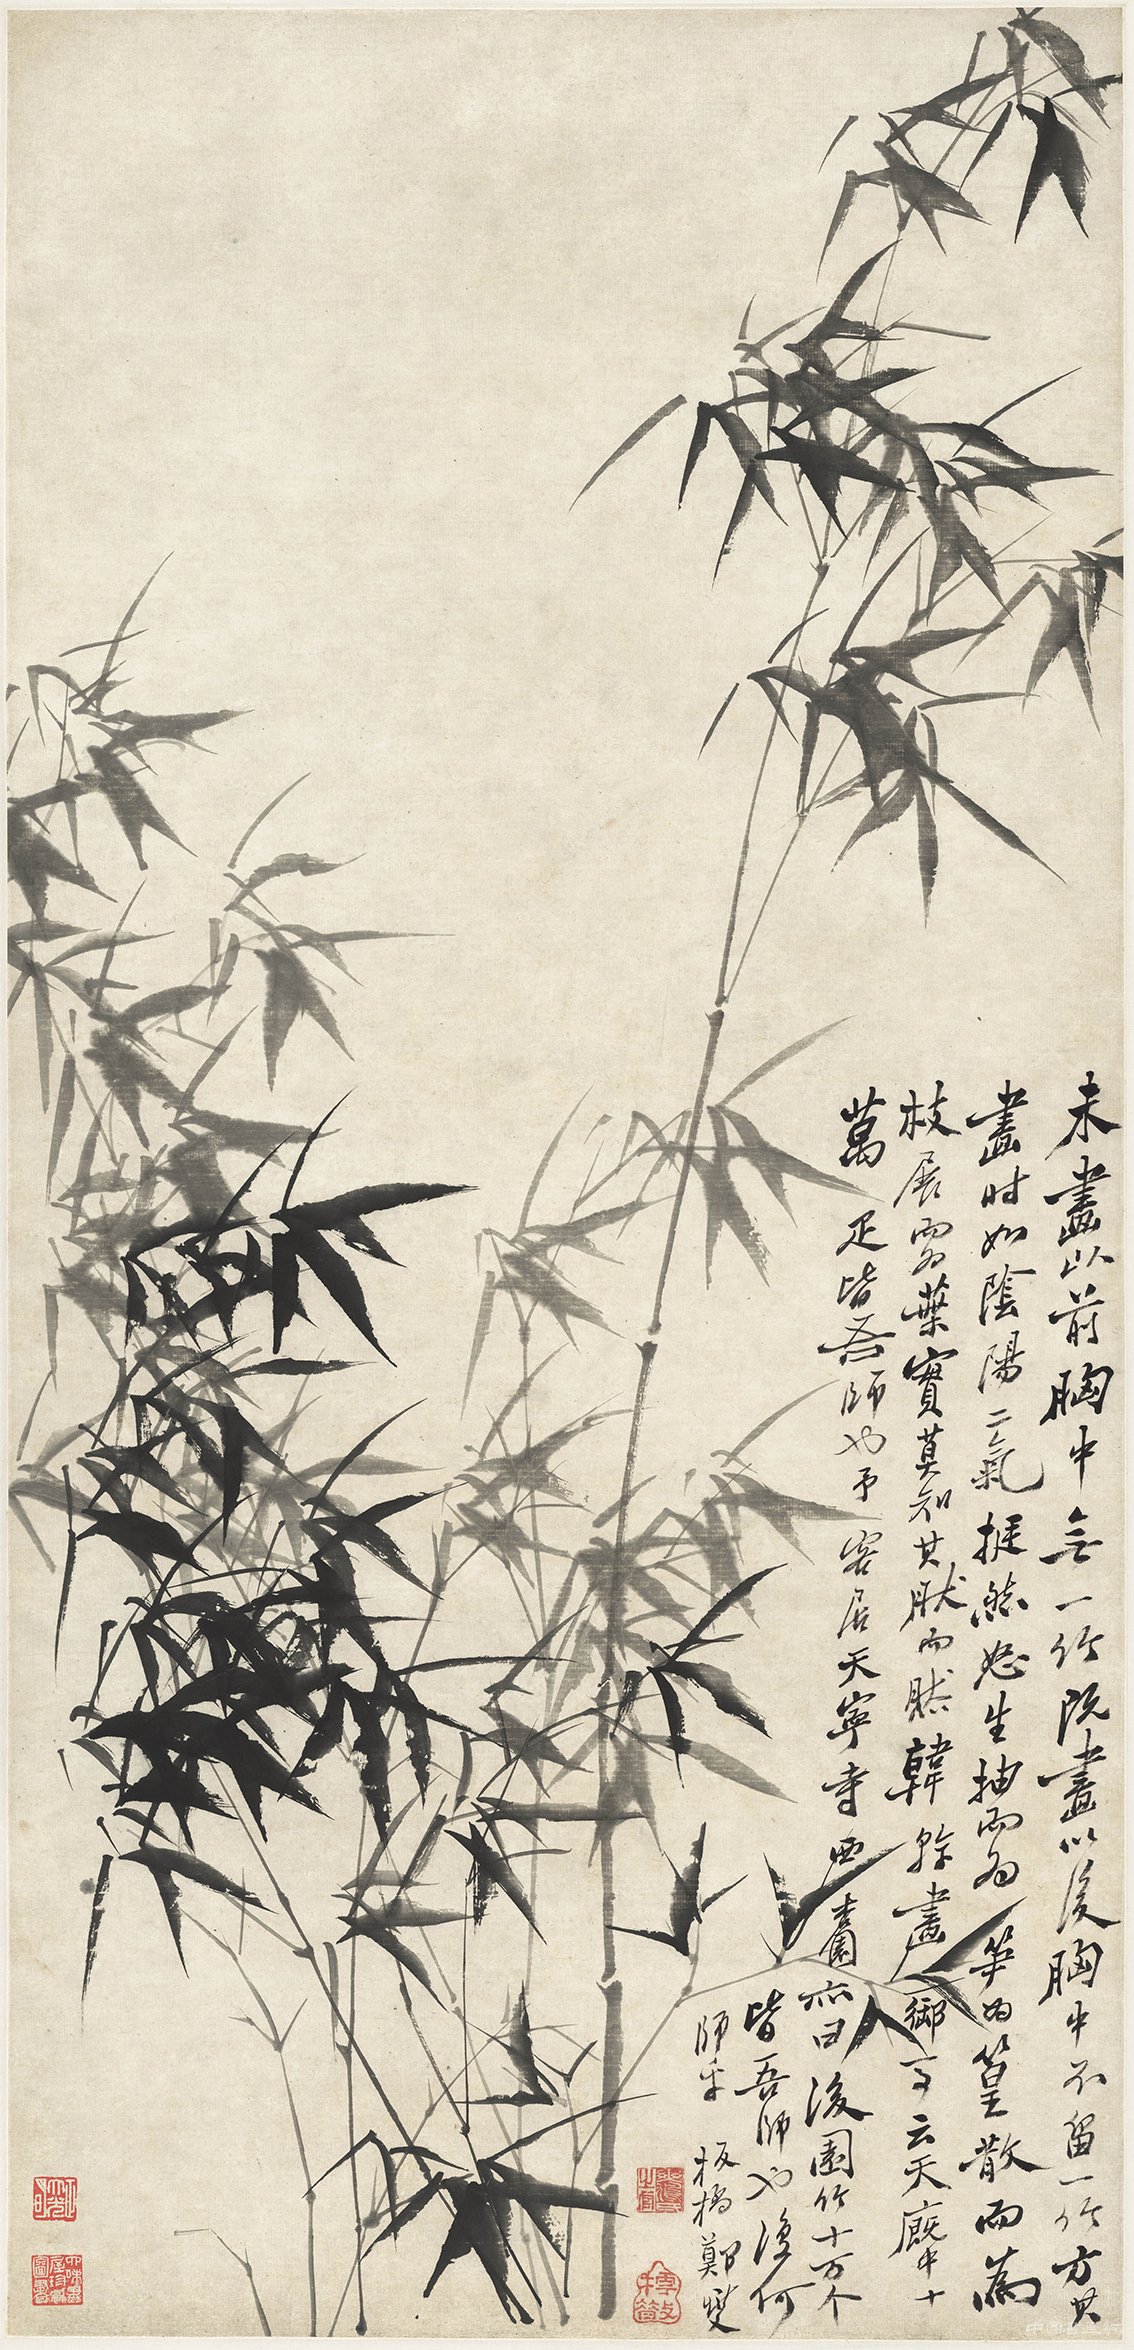 未畫以前胸中無一竹既畫以後胸中不留一竹方其
畫時如陰陽二氣挺然怒生抽而為笋為篁散而為
枝展而為葉實莫知其然而然韓幹畫御馬云天廐中十
萬疋皆吾師也予客居天寧寺西杏園亦曰後園竹十万个
皆吾師也復何
師乎
板橋鄭燮